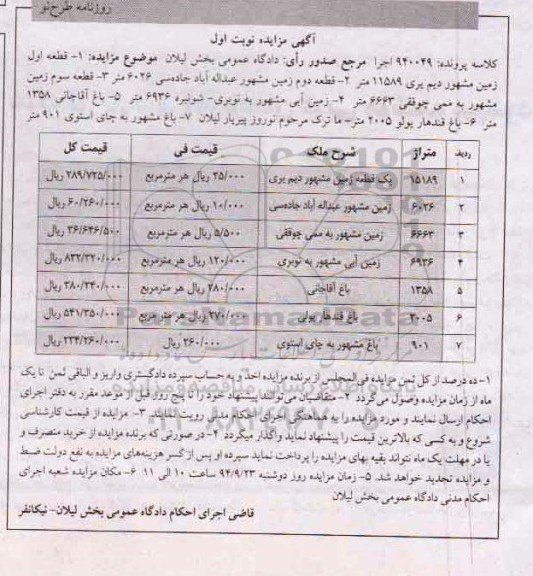 روزنامه طرح‌نو
آگهی مزایده نوبت اول
کلاسه پرونده: ۹۴۰۰۴۹ اجرا مرجع صدور رأی: دادگاه عمومی بخش لیلان موضوع مزایده: ۱- قطعه اول
زمین مشهور دیم پری ۱۱۵۸۹ متر ۲- قطعه دوم زمین مشهور عبداله آباد جاده‌سی ۶۰۲۶ متر ۳- قطعه سوم زمین
مشهور به ممی چوققی ۶۶۶۳ متر ۴- زمین آبی مشهور به نوبری- شونیره ۶۹۳۶ متر ۵- باغ آقاجانی ۱۳۵۸
متر ۶- باغ قندهار پولو ۲۰۰۵ متر- ما ترک مرحوم نوروز پیریار لیلان ۷- باغ مشهور به چای استوی ۹۰۱ متر
ردیف متراژ شرح ملک قیمت فی قیمت کل
۱ ۱۵۱۸۹ یک قطعه زمین مشهور دیم پری ۲۵/۰۰۰ ریال هر مترمربع ۲۸۹/۷۲۵/۰۰۰ ریال
۲ ۶۰۲۶ زمین مشهور عبداله آباد جاده‌سی ۱۰/۰۰۰ ریال هر مترمربع ۶۰/۲۶۰/۰۰۰ ریال
۳ ۶۶۶۳ زمین مشهور به ممی چوققی ۵/۵۰۰ ریال هر مترمربع ۳۶/۶۴۶/۵۰۰ ریال
۴ ۶۹۳۶ زمین آبی مشهور به نوبری ۱۲۰/۰۰۰ ریال هر مترمربع ۸۳۲/۳۲۰/۰۰۰ ریال
۵ ۱۳۵۸ باغ آقاجانی ۲۸۰/۰۰۰ ریال هر مترمربع ۳۸۰/۲۴۰/۰۰۰ ریال
۶ ۲۰۰۵ باغ قندهار پولی ۲۷۰/۰۰۰ ریال هر مترمربع ۵۴۱/۳۵۰/۰۰۰ ریال
۷ ۹۰۱ باغ مشهور به چای استوی ۲۶۰/۰۰۰ ریال ۲۳۴/۲۶۰/۰۰۰ ریال
۱- ده درصد از کل ثمن مزایده فی‌المجلس از برنده مزایده اخذ و به حساب سپرده دادگستری واریز و الباقی ثمن تا یک
ماه از زمان مزایده وصول می‌گردد ۲- متقاضیان می‌توانند پیشنهاد خود را تا پنج روز قبل از موعد مقرر به دفتر اجرای
احکام ارسال نمایند و مورد مزایده را به هماهنگی اجرای احکام مدنی رویت نمایند. ۳- مزایده از قیمت کارشناسی
شروع و به کسی که بالاترین قیمت را پیشنهاد نماید واگذار میگردد ۴- در صورتی که برنده مزایده از خرید منصرف و
یا در مهلت یک ماه نتواند بقیه بهای مزایده را پرداخت نماید سپرده او پس از کسر هزینه‌های مزایده به نفع دولت ضبط
و مزایده تجدید خواهد شد. ۵- زمان مزایده روز دوشنبه ۹۴/۹/۲۳ ساعت ۱۰ الی ۱۱ ۶- مکان مزایده شعبه اجرای
احکام مدنی دادگاه عمومی بخش لیلان
قاضی اجرای احکام دادگاه عمومی بخش لیلان- نیکانفر